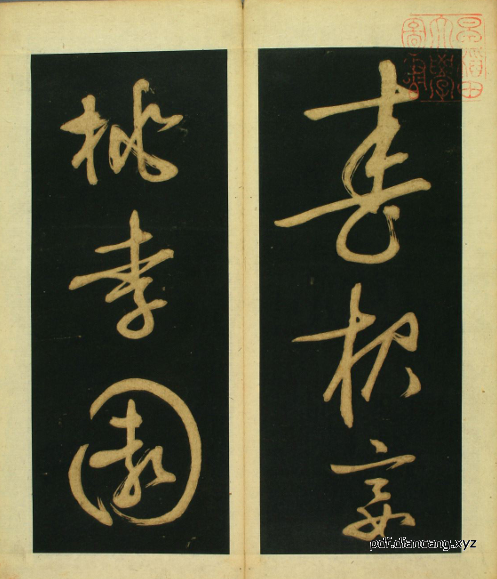 春夜宴
桃李園
pdf.diancang.xyz